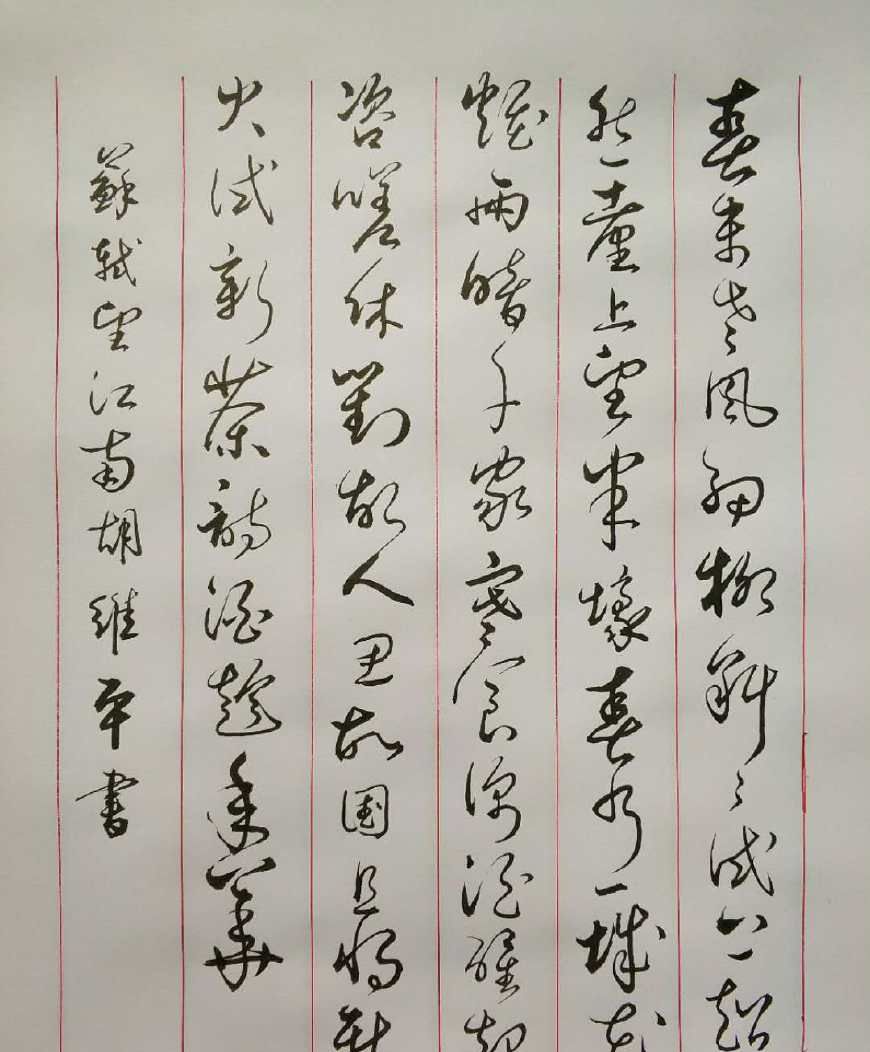 春未老風細柳斜々試上超
然臺上望半壕春水一城花
煙雨暗千家寒食後酒醒却
咨嗟休對故人思故國且將新
火試新茶詩酒趁年華
蘇軾望江南胡維平書